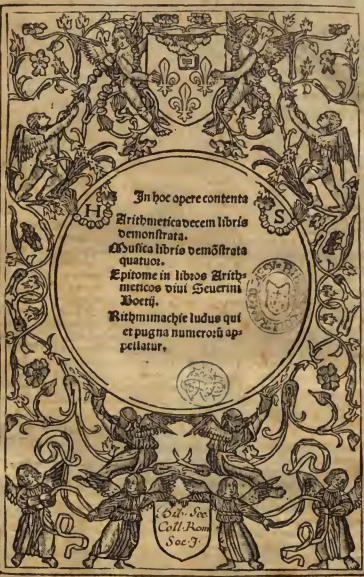 In hoc opere contenta
H S
Arithmetica decem libris
demonstrata.
Musica libris demõstrata
quatuor.
Epitome in libros Arith-
meticos diui Seuerini
Boetij.
Rithmimachie ludus qui
et pugna numerorũ ap-
pellatur.
Bib. Sec.
Coll. Rom
Soc. J.